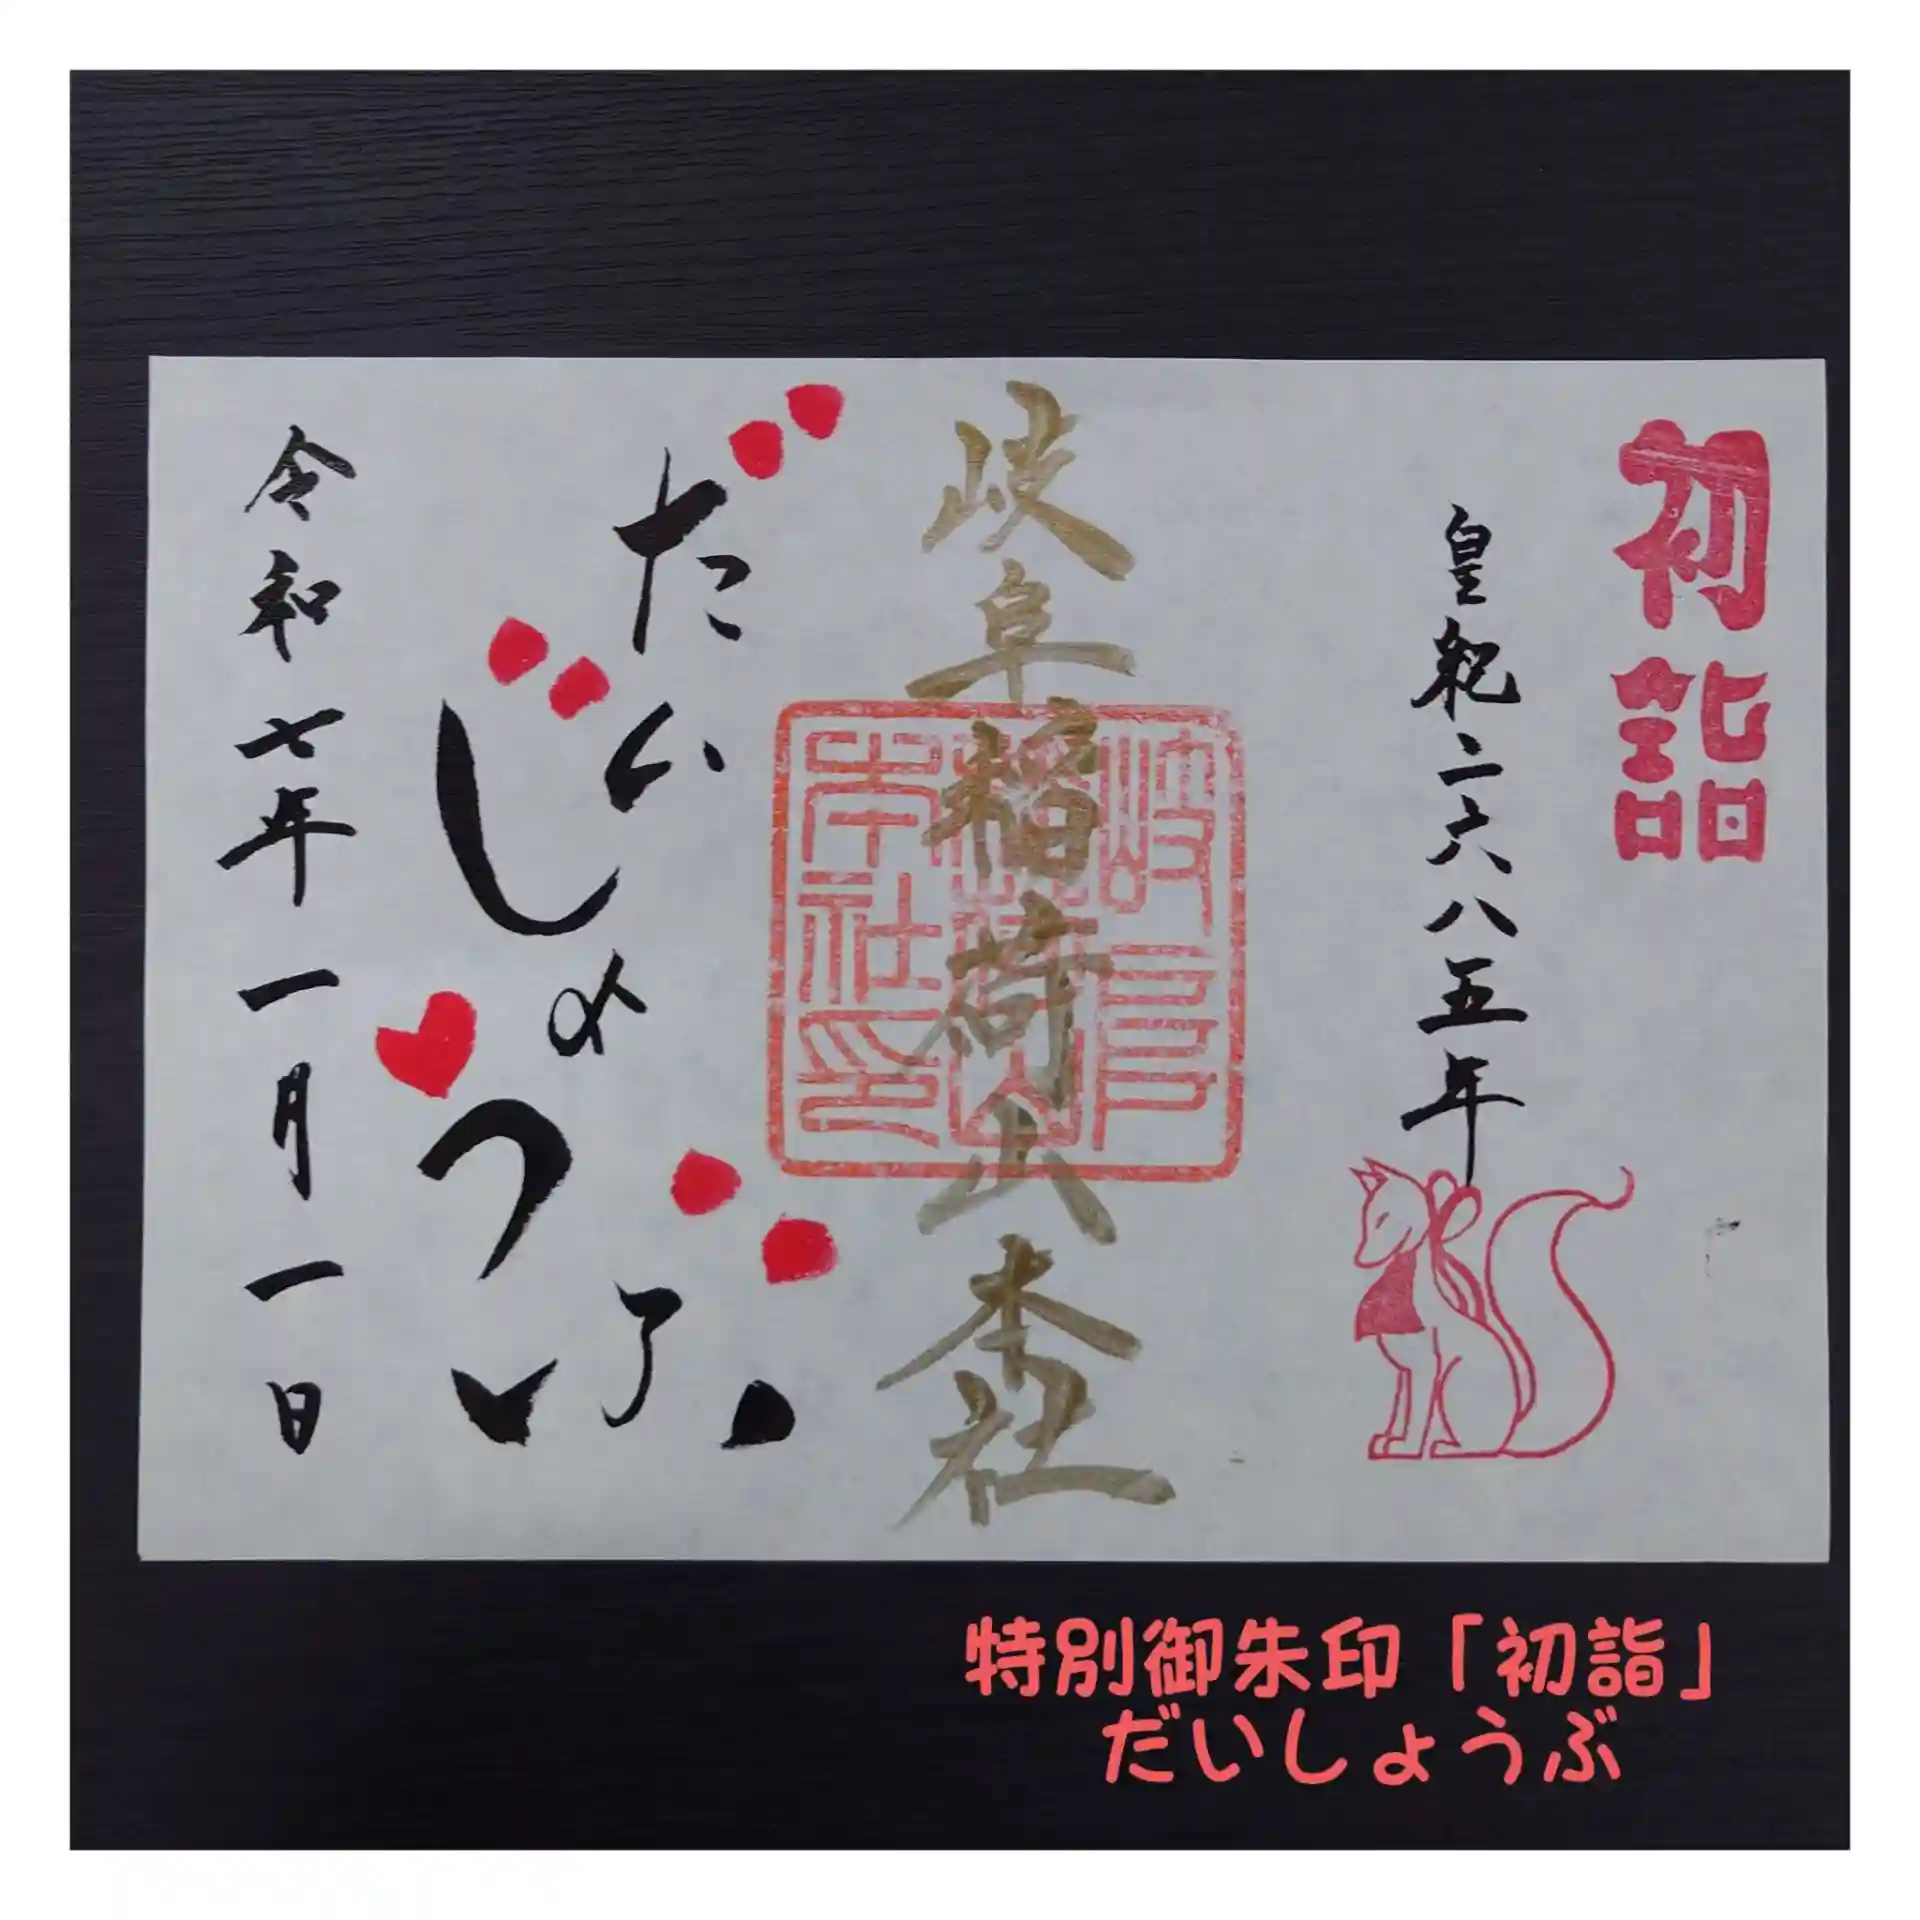 初詣
皇紀二六八五年
岐阜稲荷山本社
岐阜
稲荷山
本社印
だいじょうぶ
令和七年一月一日
特別御朱印「初詣」
だいしょうぶ